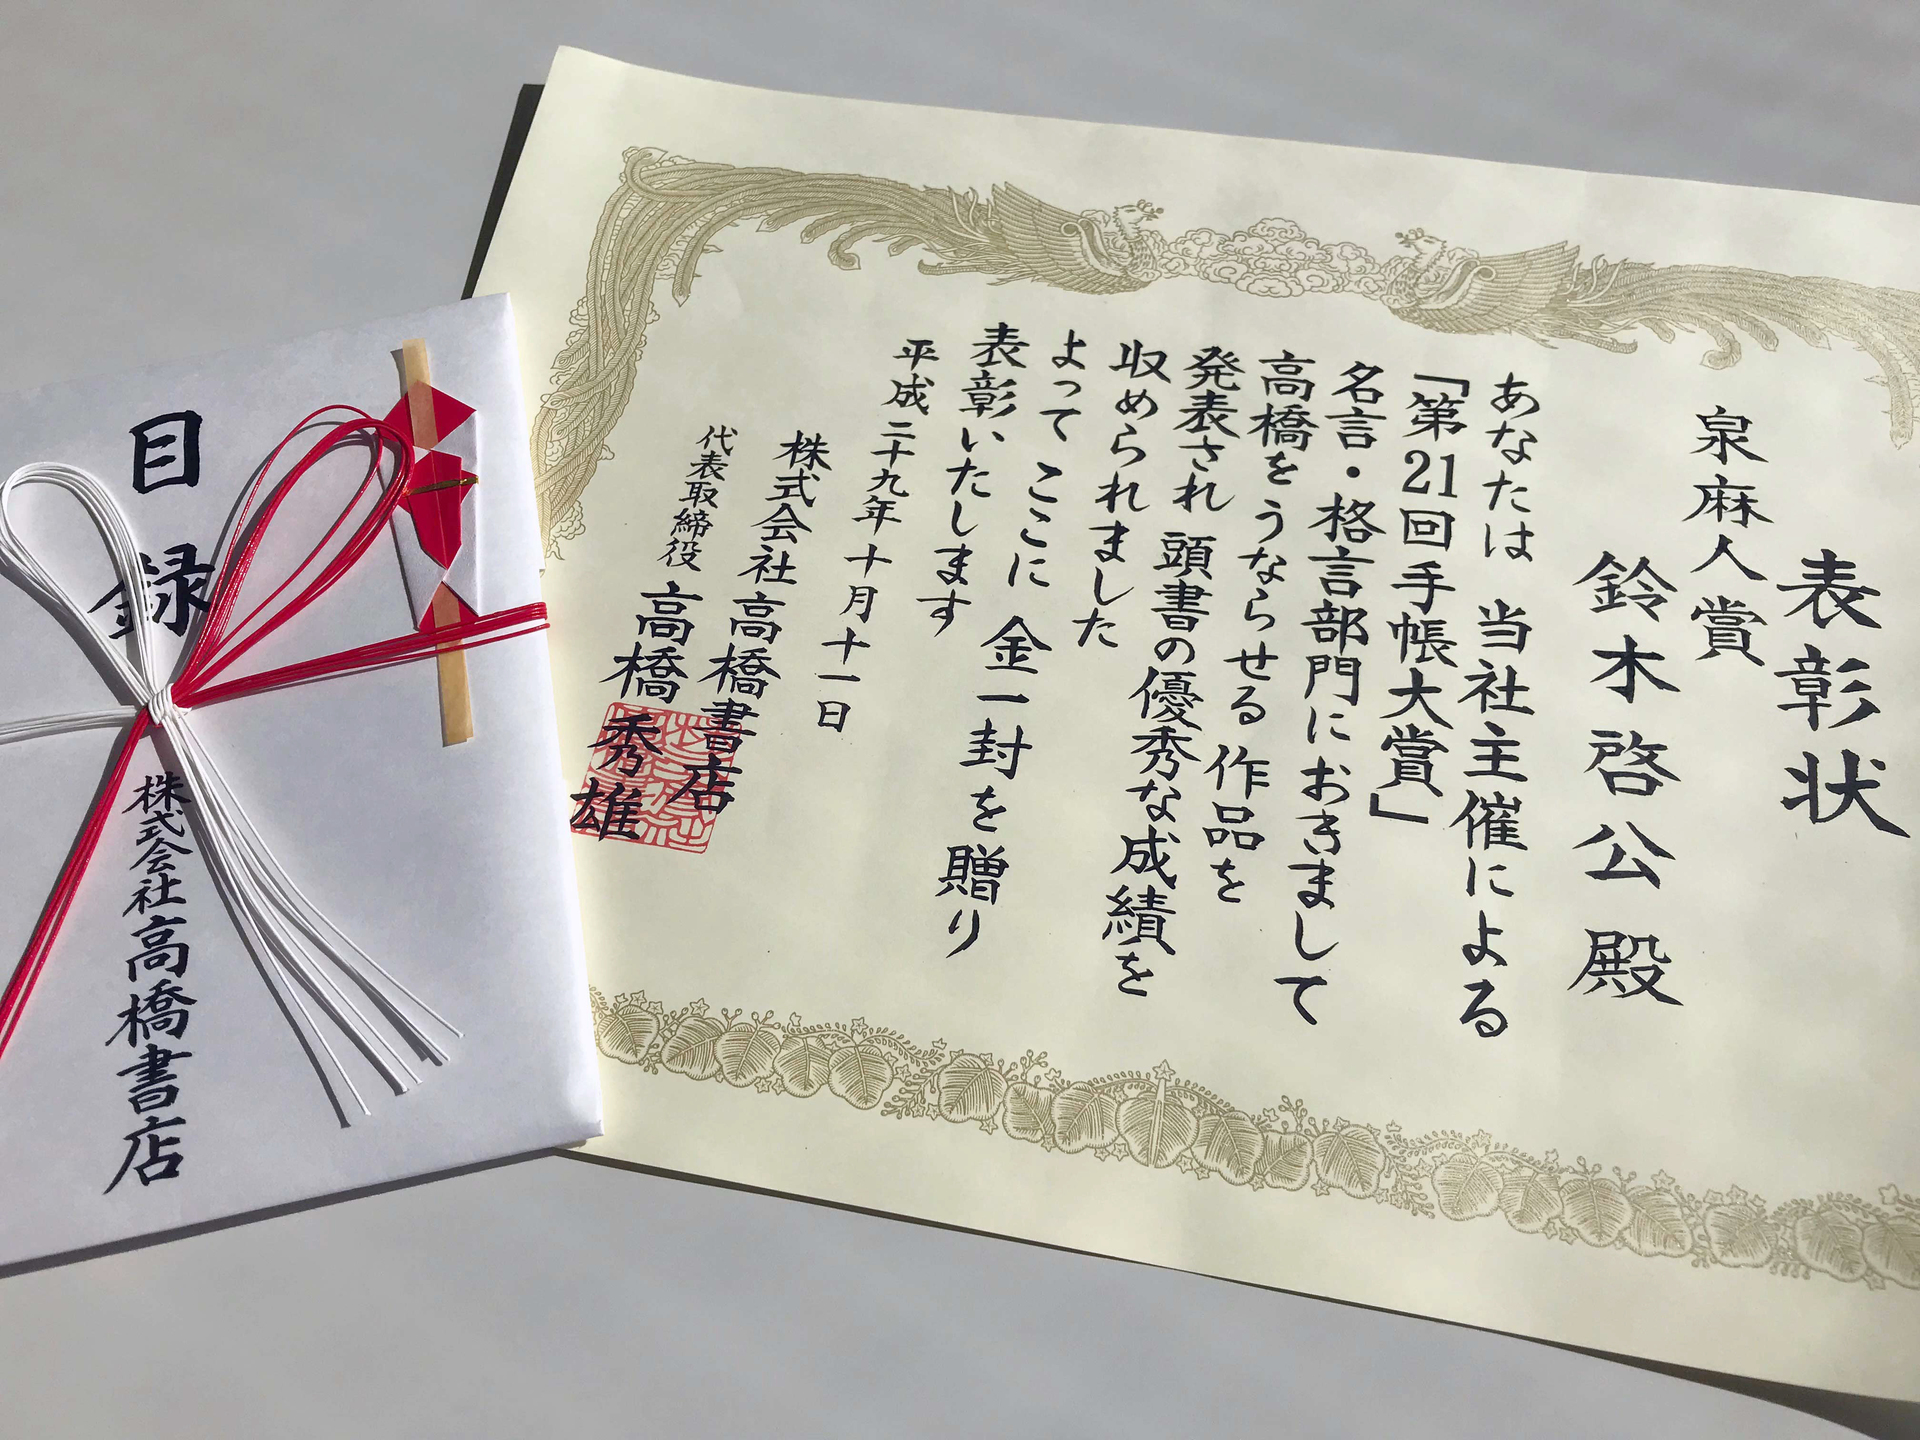 表彰状
泉麻人賞
鈴木啓公殿
あなたは 当社主催による
「第21回手帳大賞」
名言・格言部門におきまして
高橋をうならせる 作品を
発表され 頭書の優秀な成績を
収められました
よって ここに 金一封を贈り
表彰いたします
平成二十九年十月十一日
株式会社高橋書店
代表取締役 高橋秀雄
目録
株式会社高橋書店